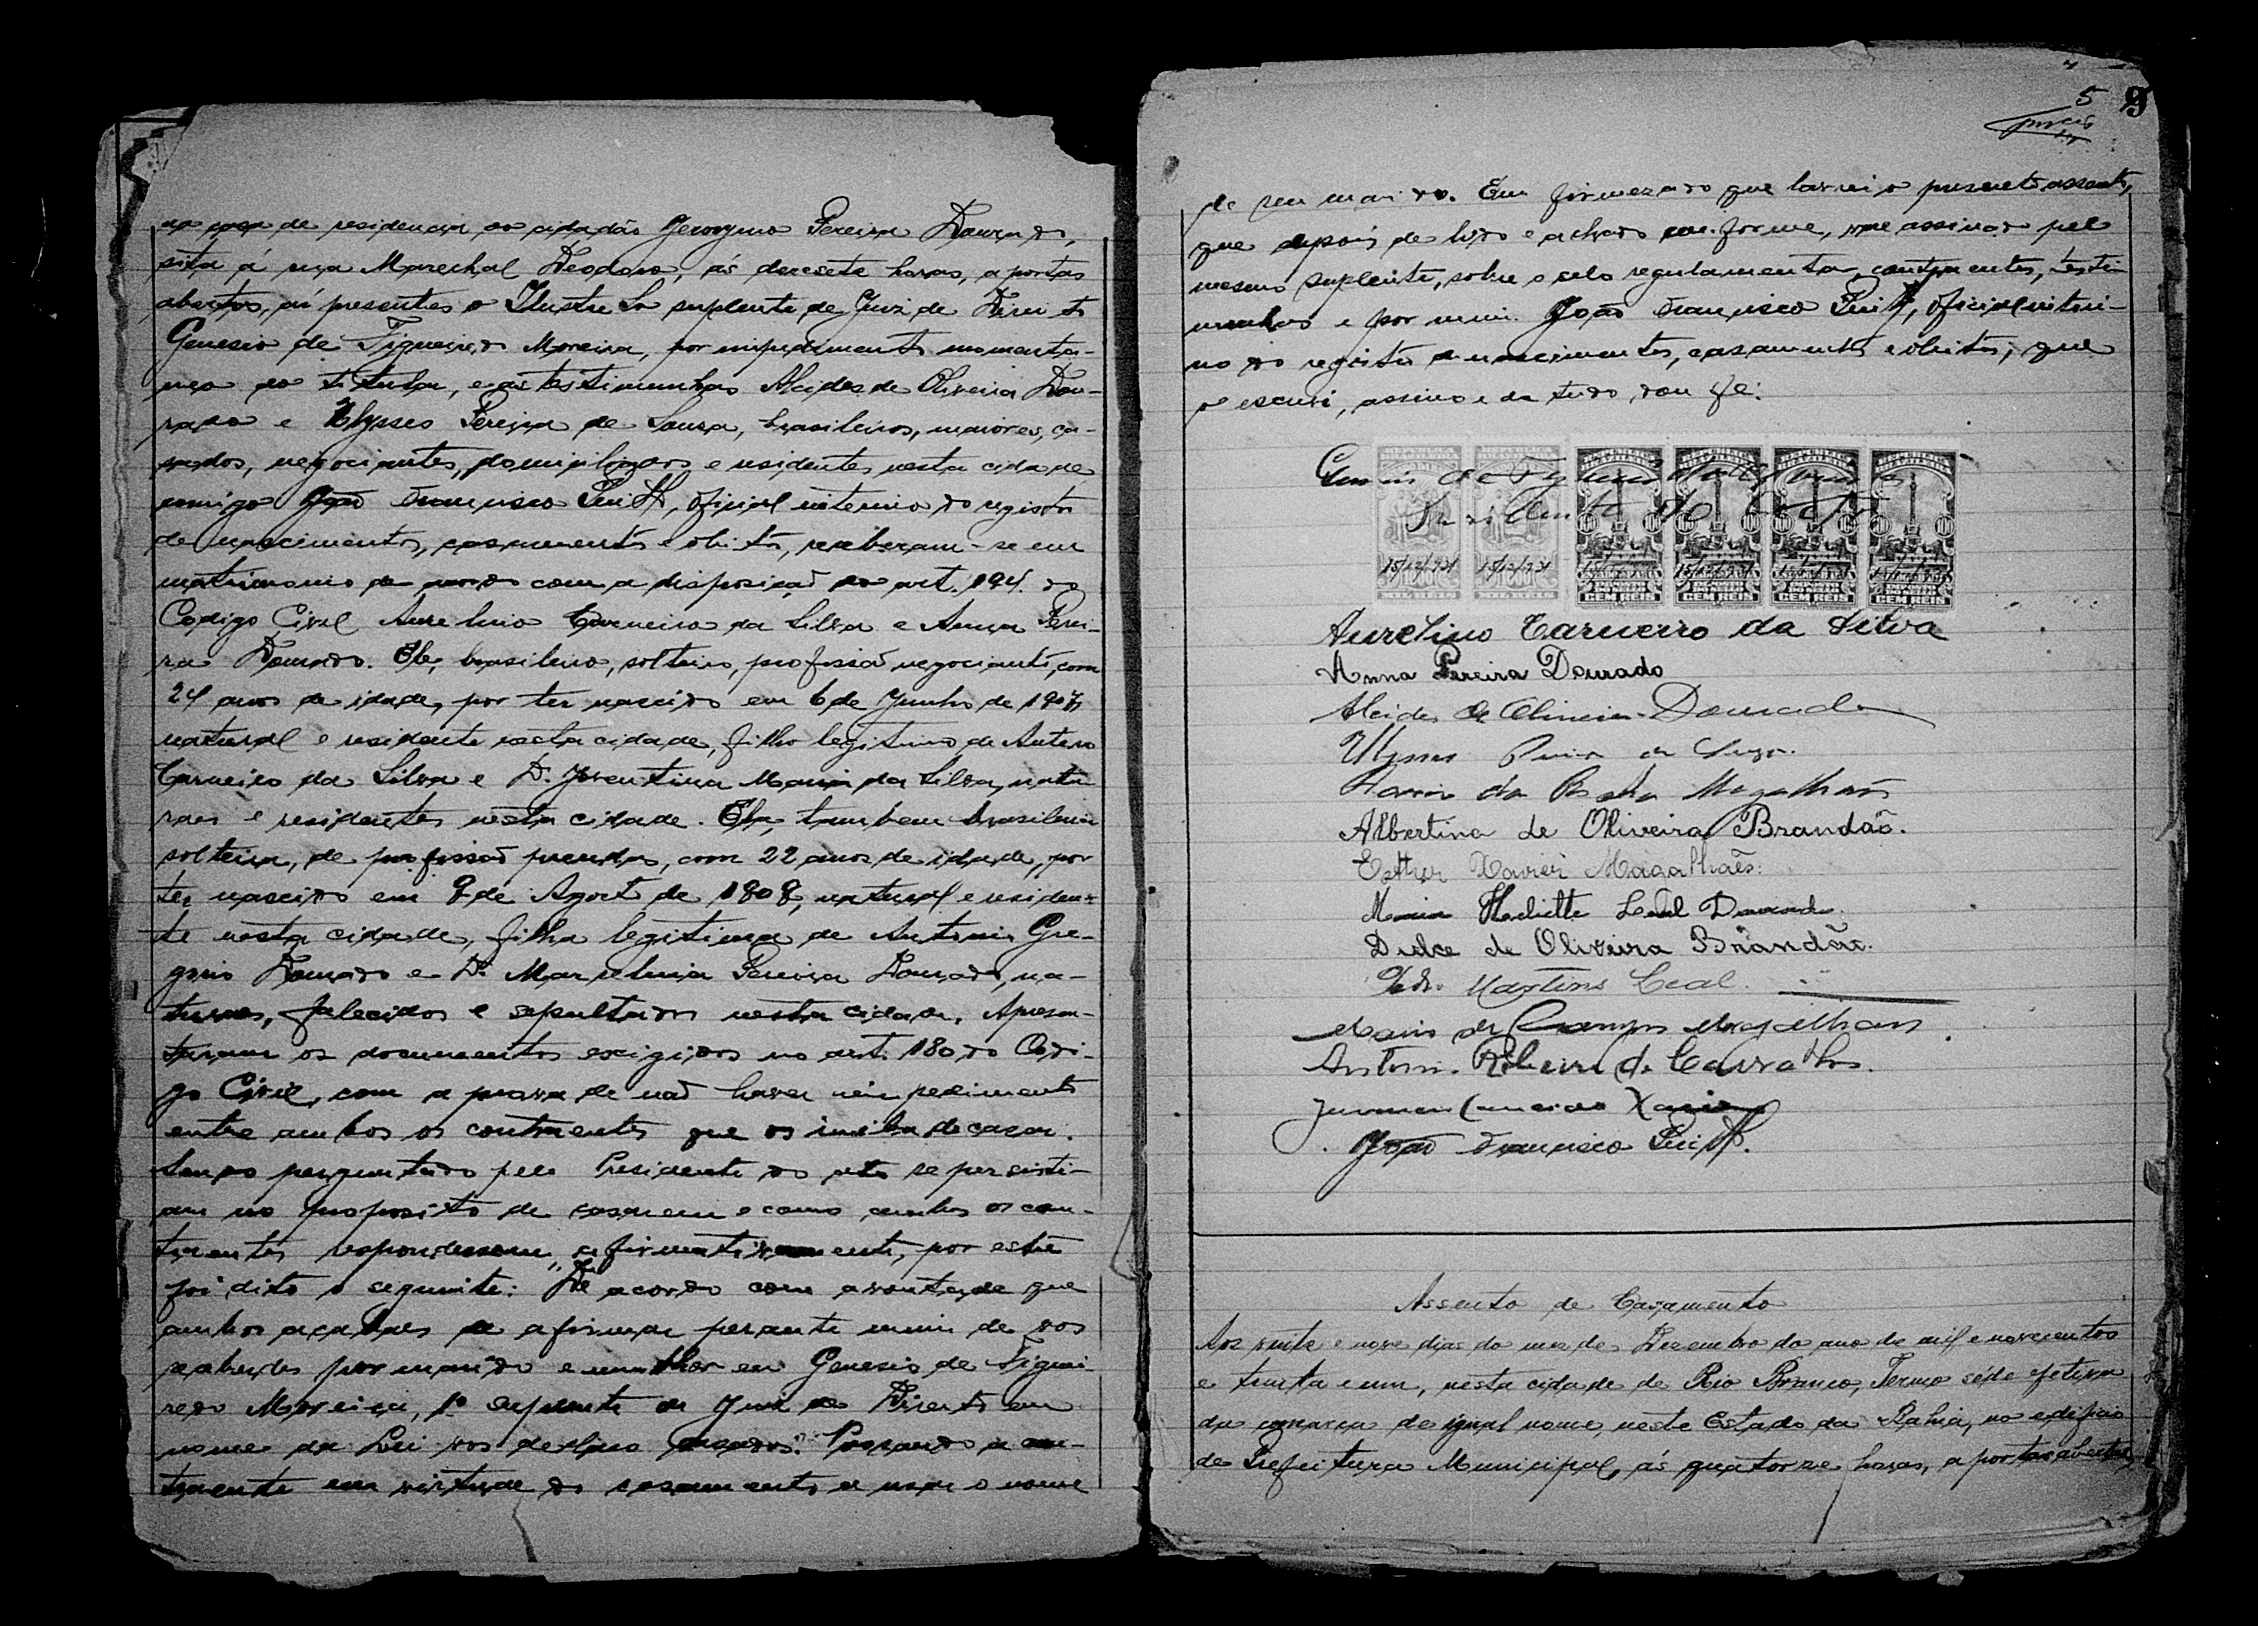 na casa de residencia do cidadão Geronymo Pereira Dourado,
sita á rua Marechal Deodoro, ás desesete horas, a portas
abertas, aí presentes o Ilustre Sr suplente de Juiz de Direito
Genesio de Figueiredo Moreira, por impedimento momenta-
neo do titular, e as testimunhas Alcides de Oliveira Dou-
rado e Ulysses Pereira de Sousa, brasileiros, maiores, ca-
sados, negociantes, domiciliados e residentes nesta cidade
comigo João Francisco, oficial interino do registro
de nascimentos, casamentos e obitos, receberam-se em
matrimonio de acordo com a disposição do art. 194 do
Codigo Civil Aurelino Carneiro da Silva e Anna Perei-
ra Dourado. Ele, brasileiro, solteiro, profissão negociante, com
24 anos de idade, por ter nascido em 6 de Junho de 1907,
natural e residente nesta cidade, filho legitimo de Antero
Carneiro da Silva e D. Joventina Maria da Silva, natu-
raes e residentes nesta cidade. Ela, tambem brasileira
solteira, de profissão prendas, com 22 anos de idade, por
ter nascido em de Agosto de natural e residen-
te nesta cidade, filha legitima de Antonio Gre-
gorio Dourado e D. Marcelina Pereira Dourado, na-
turaes, falecidos e sepultados nesta cidade. Apresen-
taram os documentos exigidos no art. 180 do Codi-
go Civil, com a prova de não haver impedimento
entre ambos os contraentes que os iniba de casar.
Sendo perguntado pelo Presidente do ato se persisti-
am no proposito de casarem e como ambos os con-
traentes respondessem afirmativamente, por este
foi dito o seguinte: "De acordo com a vontade que
ambos acabaes de afirmar perante mim de vos
receberdes por marido e mulher eu Genesio de Figuei-
redo Moreira, 1º suplente de Juiz de Direito em
nome da Lei vos declaro casados." Passando a con-
traente em virtude do casamento a usar o nome
5
de seu marido. Em firmeza do que lavrei o presente assento,
que depois de lido e achado conforme, vae assinado pelo
mesmo suplente, sobre o selo regulamentar, contraentes, testi-
munhas e por mim. João Francisco, oficial interi-
no do registro de nascimentos, casamentos e obitos, que
o escrevi, assino e de tudo dou fé.
Genesio de Figueiredo Moreira
15/12/931 15/12/931 15/12/931 15/12/931 15/12/931 15/12/931
CEM REIS CEM REIS CEM REIS CEM REIS
Aurelino Carneiro da Silva
Anna Pereira Dourado
Alcides de Oliveira Dourado
Ulysses Pereira de Souza.
da Rocha Magalhães
Albertina de Oliveira Brandão.
Esther Xavier Magalhães.
Maria Leal Dourado.
Dulce de Oliveira Brandão.
Pedro Martins Leal.
Mario de Campos Magalhães
Antonio Ribeiro de Carvalho.
Xavier
João Francisco
Assento de Casamento
Aos vinte e nove dias do mez de Dezembro do ano de mil e novecentos
e trinta e um, nesta cidade de Rio Branco, Termo séde efetiva
da comarca de igual nome, neste Estado da Bahia, no edificio
da Prefeitura Municipal, ás quatorze horas, a portas abertas,